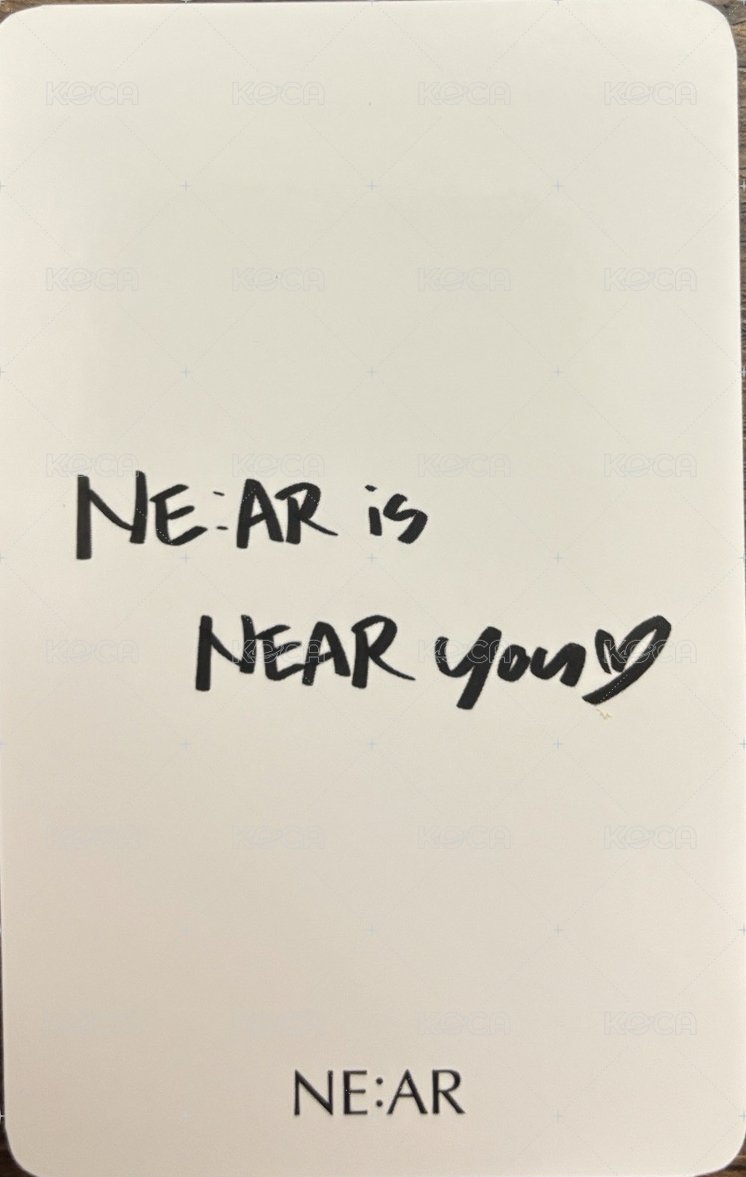 NE:AR is
NEAR you♡
NE:AR
KOCA